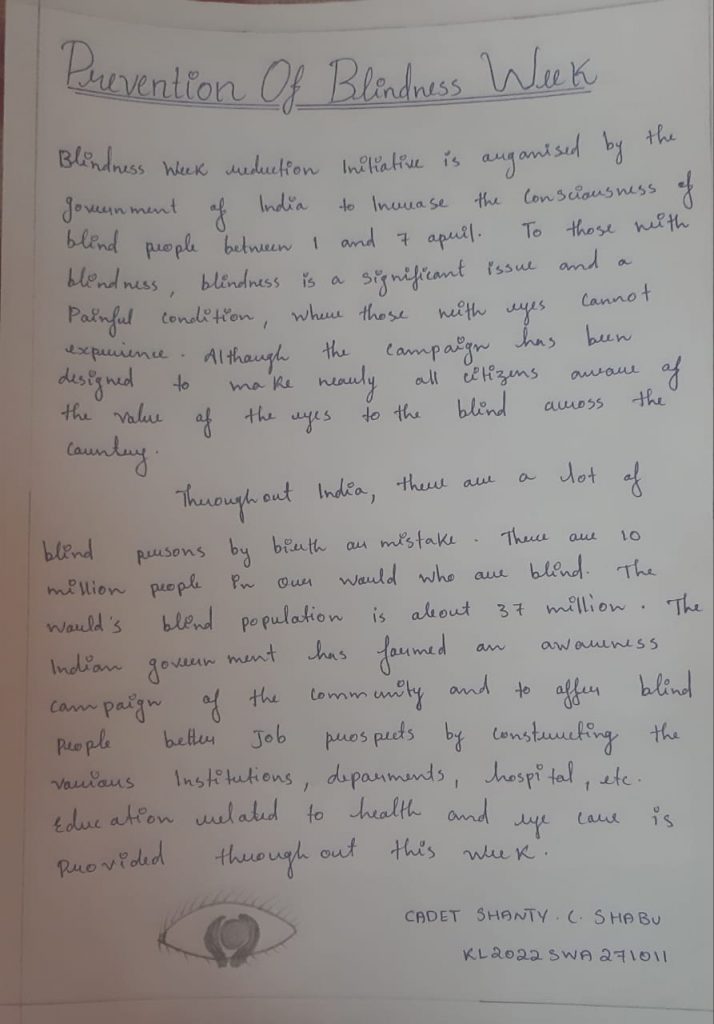 Prevention Of Blindness Week
Blindness Week reduction Initiative is organised by the
government of India to Increase the Consciousness of
blind people between 1 and 7 april. To those with
blindness, blindness is a significant issue and a
Painful condition, where those with eyes cannot
experience. Although the campaign has been
designed to make nearly all citizens aware of
the value of the eyes to the blind across the
country.
Throughout India, there are a lot of
blind persons by birth or mistake. There are 10
million people in our would who are blind. The
would's blind population is about 37 million. The
Indian government has formed an awareness
campaign of the community and to offer blind
people better Job prospects by constructing the
various Institutions, deparments, hospital, etc.
Education related to health and eye care is
Provided throughout this week.
CADET SHANTY. C. SHABU
KL2022SWA271011